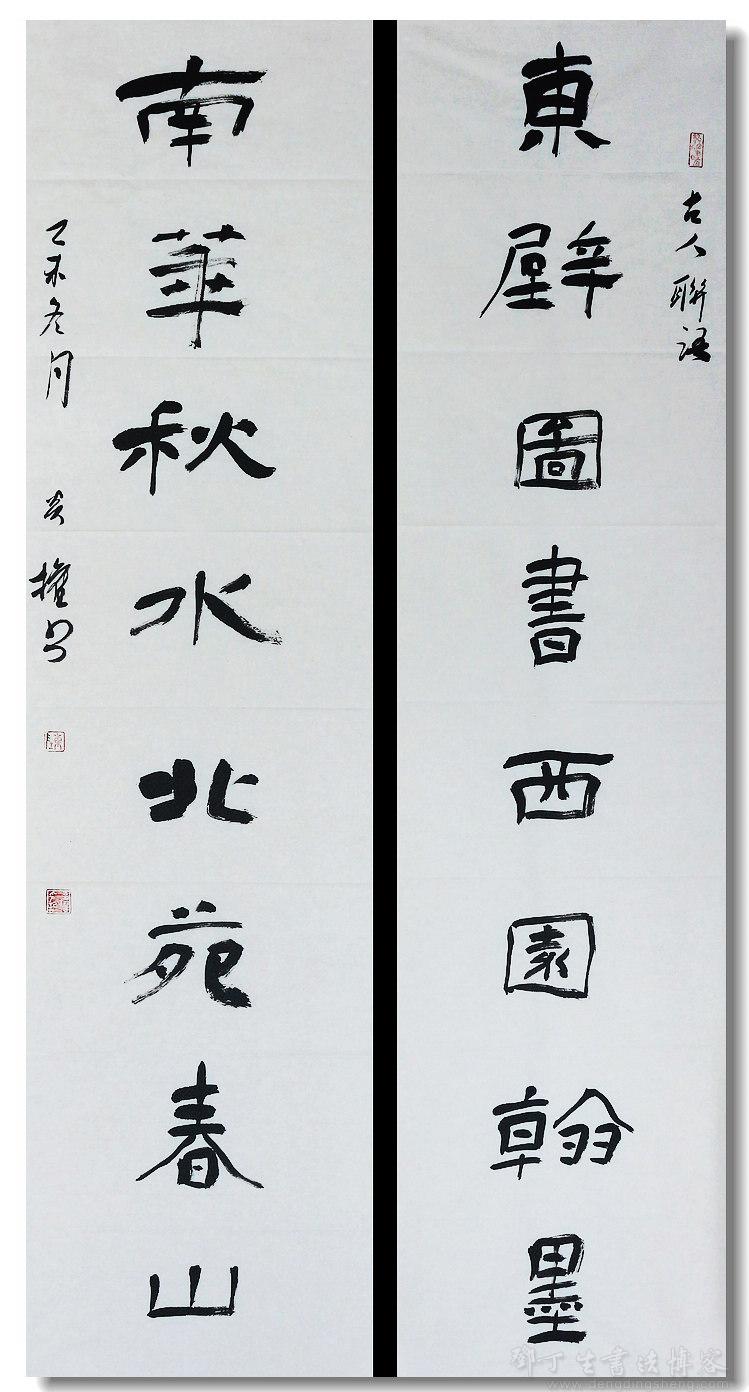 古人聯語
東壁圖書西園翰墨
南華秋水北苑春山
乙未冬月
鄧丁生書法博客
www.dengdingsheng.com